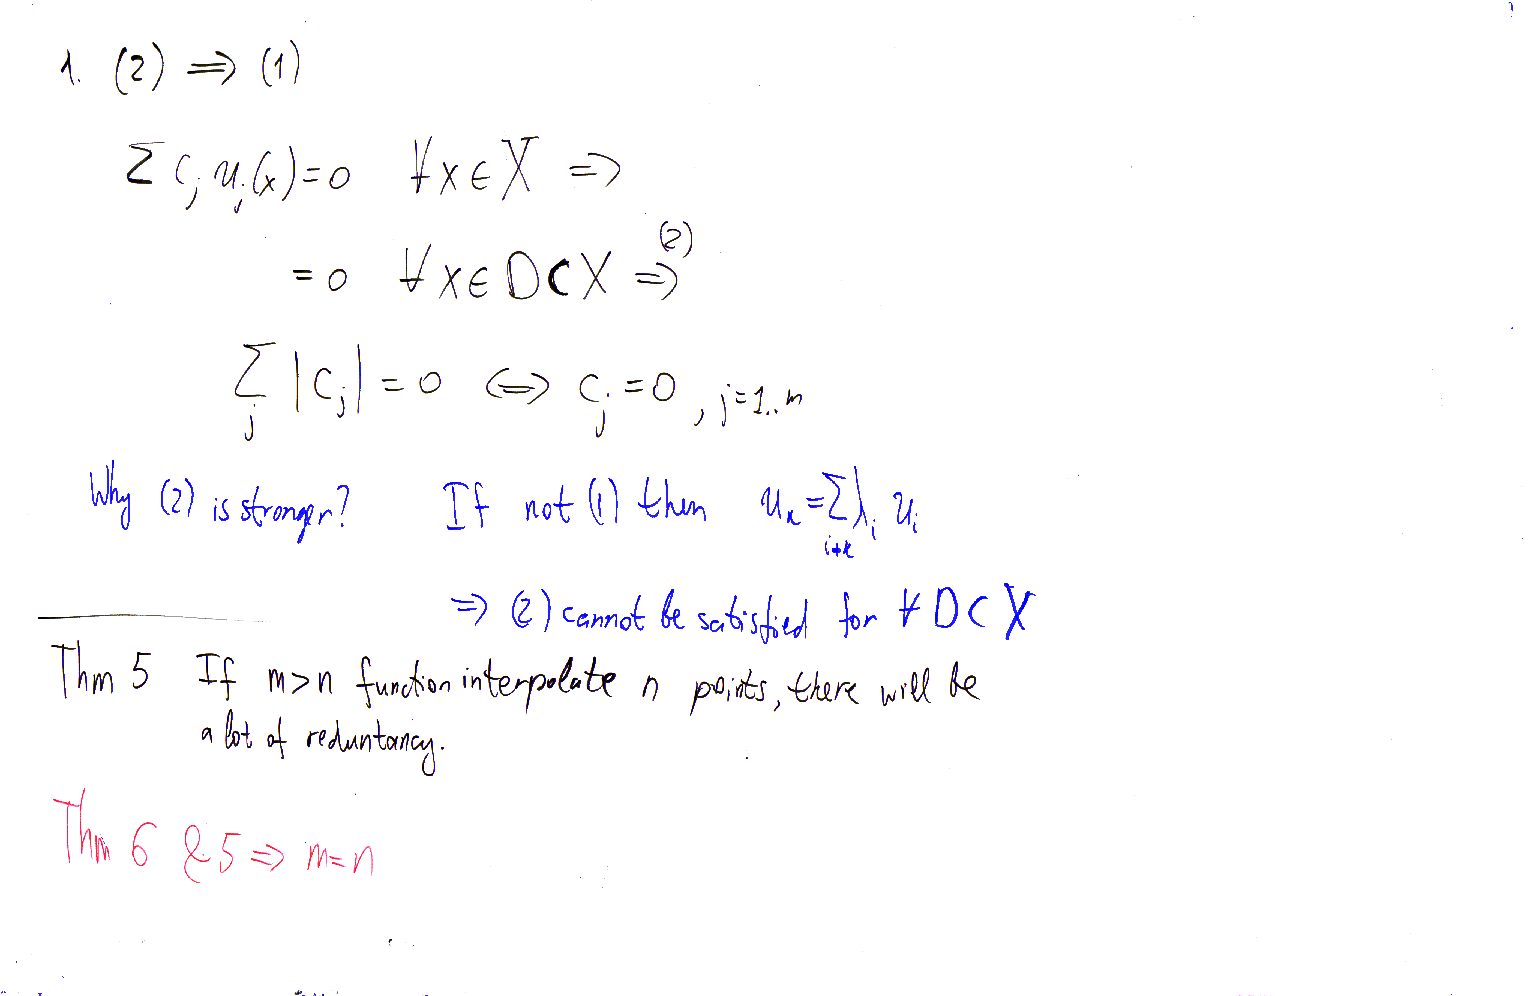 1. (2) ⇒ (1)
Σ cⱼ uⱼ(x) = 0 ∀x∈X ⇒
= 0 ∀x∈D⊂X ⇒ (2)
Σⱼ |cⱼ| = 0 ⇔ cⱼ = 0, j=1..m
Why (2) is stronger? If not (1) then uₖ = Σ λᵢ uᵢ
i≠k
⇒ (2) cannot be satisfied for ∀ D⊂X
Thm 5 If m>n function interpolate n points, there will be
a lot of reduntancy.
Thm 6 & 5 ⇒ m=n